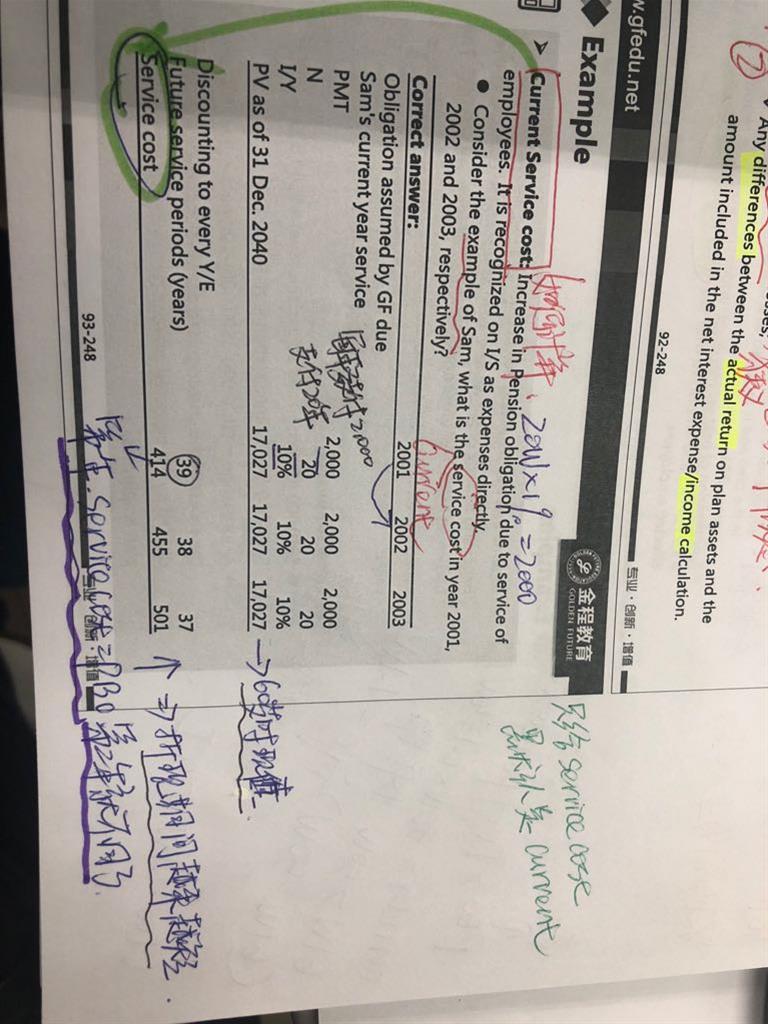 ② Any differences between the actual return on plan assets and the
amount included in the net interest expense/income calculation.
92-248
专业·创新·增值
w.gfedu.net
Example
金程教育
GOLDEN FUTURE
200W×1%=2000
Current Service cost: Increase in Pension obligation due to service of
employees. It is recognized on I/S as expenses directly.
Consider the example of Sam, what is the service cost in year 2001,
2002 and 2003, respectively?
current
Correct answer: 2001 2002 2003
Obligation assumed by GF due
Sam's current year service
PMT 2,000 2,000 2,000
N 20 20 20
支付20年
I/Y 10% 10% 10%
PV as of 31 Dec. 2040 17,027 17,027 17,027
→60岁时现值.
Discounting to every Y/E
Future service periods (years) 39 38 37
Service cost 414 455 501
↑ ⇒折现期间越来越短.
93-248
专业·创新·增值
第一年. service cost = PBO
service cost
current